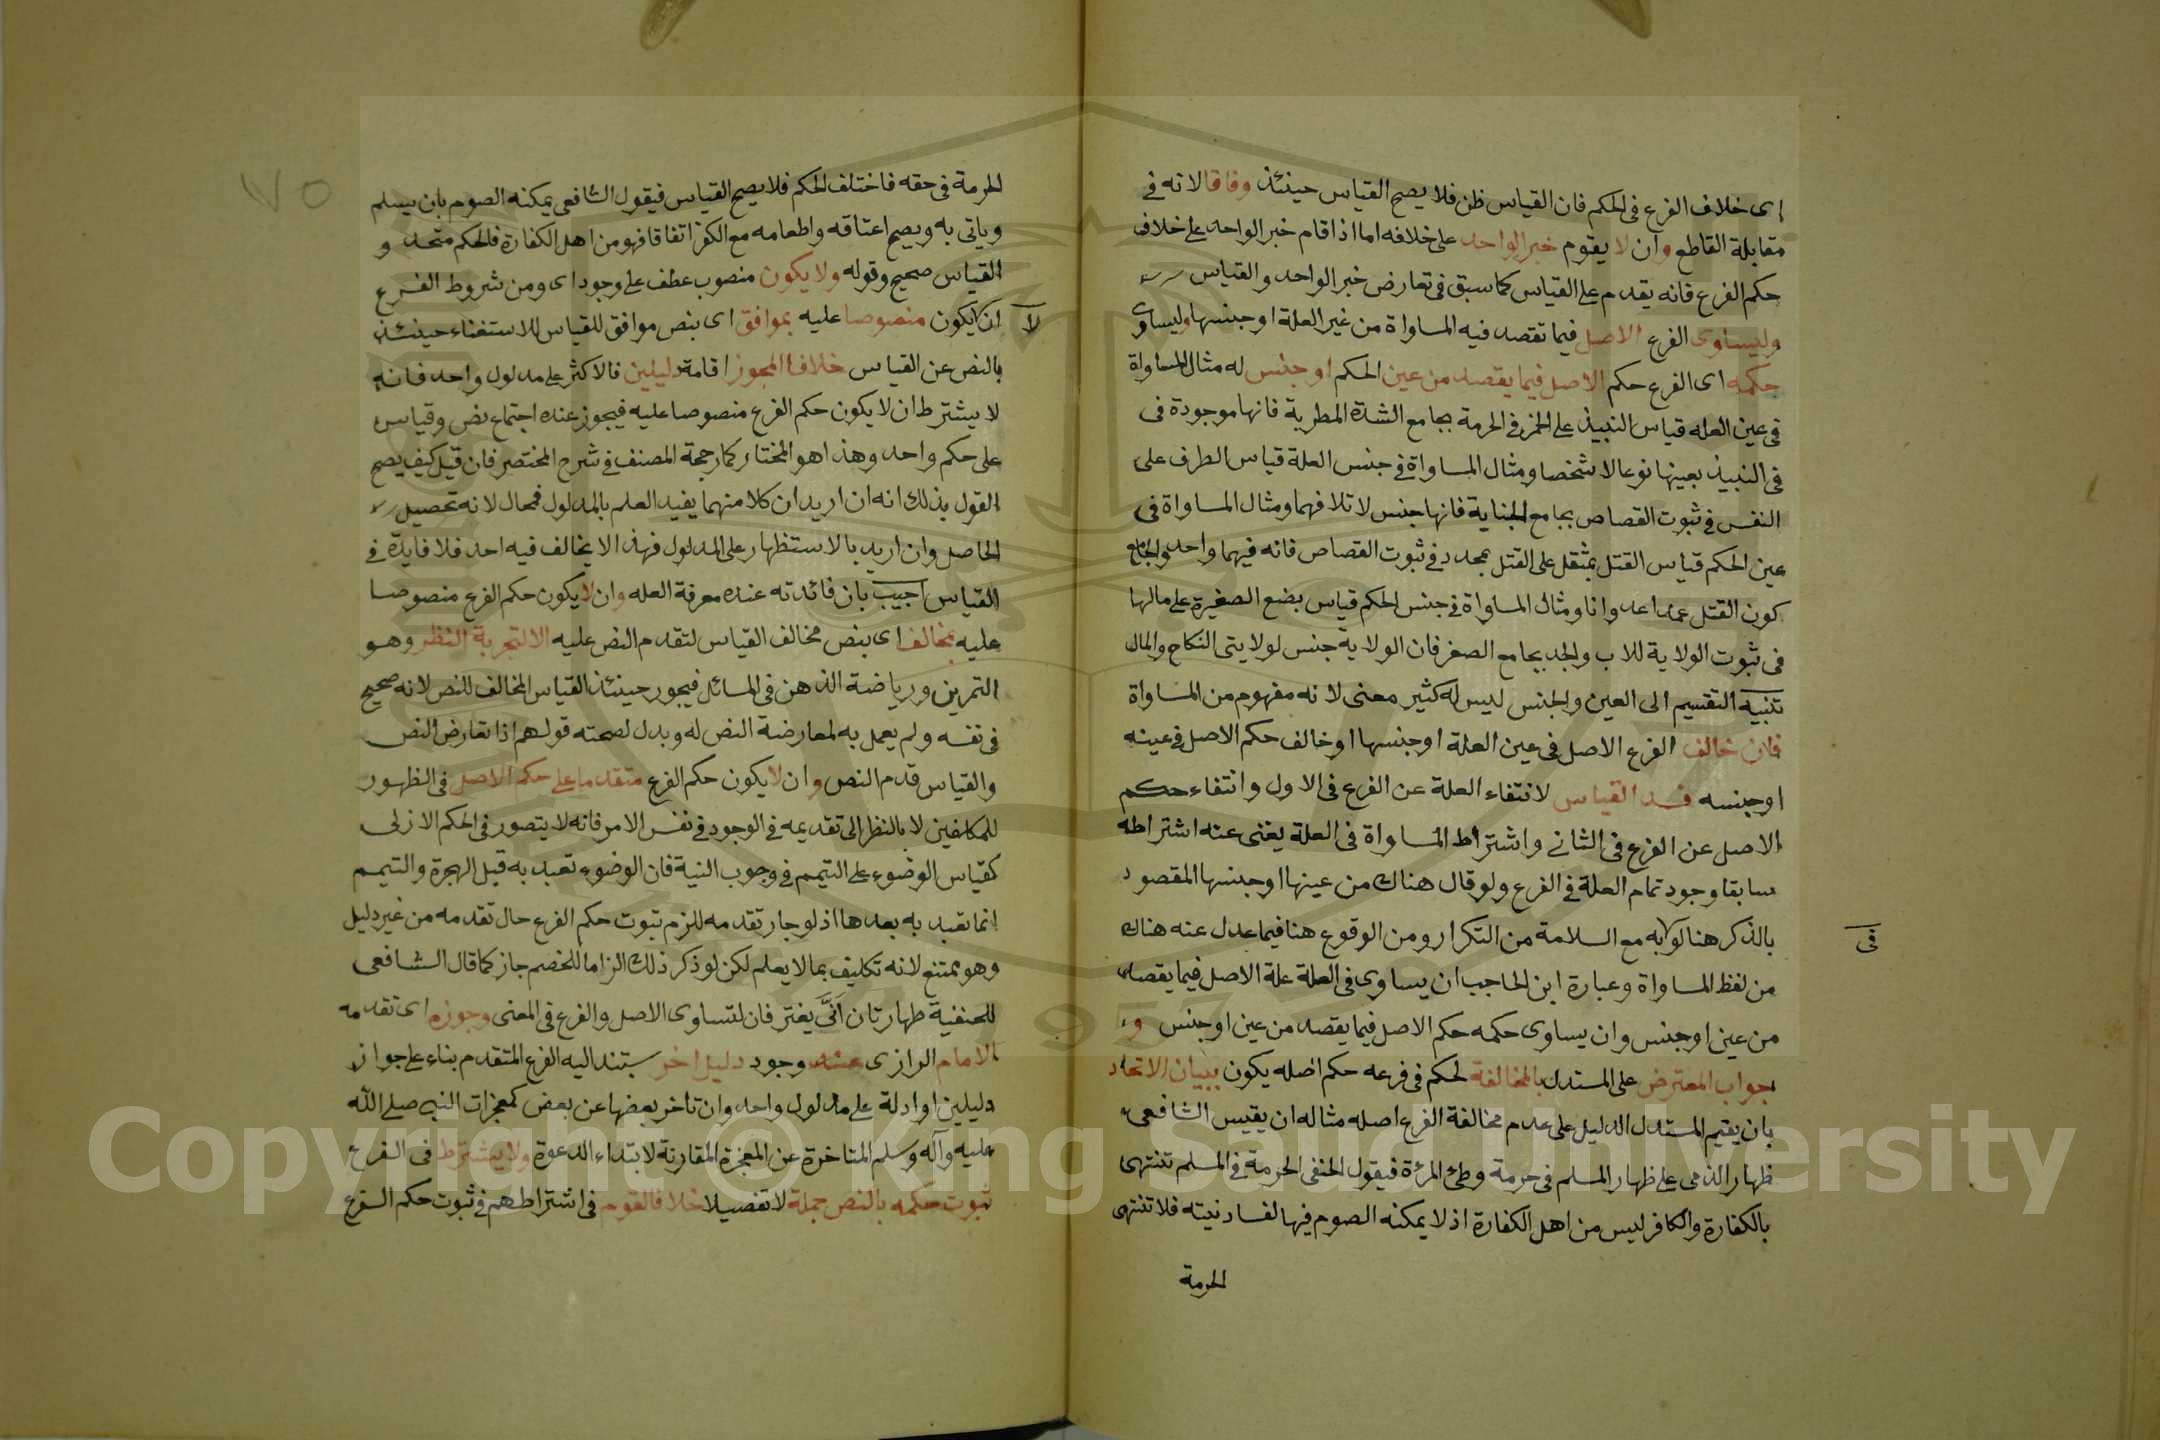 اى خلاف الفرع فى الحكم فان القياس ظن فلا يصح القياس حينئذ وفاقا لانه فى
مقابلة القاطع وان لا يقوم خبر الواحد على خلافه اما اذا قام خبر الواحد على خلاف
حكم الفرع فانه يقدم على القياس كما سبق فى تعارض خبر الواحد والقياس
وليساوى الفرع الاصل فيما تقصد فيه المساواة من غير العلة او جنسها وليساوى
حكمه اى الفرع حكم الاصل فيما يقصد من عين الحكم او جنس له مثال المساواة
فى عين العله قياس النبيذ على الخمر فى الحرمة بجامع الشدة المطربة فانها موجودة فى
فى النبيذ بعينها نوعا لا شخصا ومثال المساواة فى جنس العلة قياس الطرف على
النفس فى ثبوت القصاص بجامع الجناية فانها جنس لاتلافهما ومثال المساواة فى
عين الحكم قياس القتل بمثقل على القتل بمحدد فى ثبوت القصاص فانه فيهما واحد والجامع
كون القتل عمدا عدوانا ومثال المساواة فى جنس الحكم قياس بضع الصغيرة على مالها
فى ثبوت الولاية للاب والجد بجامع الصغر فان الولاية جنس لولايتى النكاح والمال
تنبيه التقسيم الى العين والجنس ليس له كثير معنى لانه مفهوم من المساواة
فان خالف الفرع الاصل فى عين العلة او جنسها او خالف حكم الاصل فى عينه
او جنسه فسد القياس لانتفاء العلة عن الفرع فى الاول وانتفاء حكم
الاصل عن الفرع فى الثانى واشتراط المساواة فى العلة يغنى عنه اشتراطه
سابقا وجود تمام العلة فى الفرع ولو قال هناك من عينها او جنسها المقصود
بالذكر هنا لو لا به مع السلامة من التكرار ومن الوقوع هنا فيما عدل عنه هناك
فى
من لفظ المساواة وعبارة ابن الحاجب ان يساوى فى العلة علة الاصل فيما يقصد
من عين او جنس وان يساوى حكمه حكم الاصل فيما يقصد من عين او جنس و
جواب المعترض على المستدل بالمخالفة لحكم فى فرعه حكم اصله يكون ببيان الاتحاد
بان يقيم المستدل الدليل على عدم مخالفة الفرع اصله مثاله ان يقيس الشافعى
ظهار الذمى على ظهار المسلم فى حرمة وطئ المرئة فيقول الحنفى الحرمة فى المسلم تنتهى
بالكفارة والكافر ليس من اهل الكفارة اذ لا يمكنه الصوم فيها لفساد نيته فلا تنتهى
الحرمة
الحرمة فى حقه فاختلف الحكم فلا يصح القياس فيقول الشافعى يمكنه الصوم بان يسلم
وياتى به ويصح اعتاقه واطعامه مع الكفر اتفاقا فهو من اهل الكفارة فالحكم متحد و
القياس صحيح وقوله ولا يكون منصوب عطف على وجود اى ومن شروط الفرع
لا
ان يكون منصوصا عليه بموافق اى بنص موافق للقياس للاستغناء حينئذ
بالنص عن القياس خلافا المجوز اقامة دليلين فالاكثر على مدلول واحد فانه
لا يشترط ان لا يكون حكم الفرع منصوصا عليه فيجوز عنده اجتماع نص وقياس
على حكم واحد وهذا هو المختار كما رجحة المصنف فى شرح المختصر فان قيل كيف يصح
القول بذلك انه ان اريد ان كلا منهما يفيد العلم بالمدلول فمحال لانه تحصيل
الحاصل وان اريد بالاستظهار على المدلول فهذا لا يخالف فيه احد فلا فايدة فى
القياس اجيب بان فائدته عنده معرفة العله وان لا يكون حكم الفرع منصوصا
عليه بمخالف اى بنص مخالف القياس لتقدم النص عليه الا لتجربة النظر وهو
التمرين ورياضة الذهن فى المسائل فيجوز حينئذ القياس المخالف للنص لانه صحيح
فى نفسه ولم يعمل به لمعارضة النص له ويدل لصحته قولهم اذا تعارض النص
والقياس قدم النص وان لا يكون حكم الفرع متقدما على حكم الاصل فى الظهور
للمكلفين لا بالنظر الى تقديمه فى الوجود فى نفس الامر فانه لا يتصور فى الحكم الازلى
كقياس الوضوء على التيمم فى وجوب النية فان الوضوء تعبد به قبل الهجرة والتيمم
انما تعبد به بعدها اذ لو جاز تقدمه للزم ثبوت حكم الفرع حال تقدمه من غير دليل
وهو ممتنع لانه تكليف بما لا يعلم لكن لو ذكر ذلك الزاما للخصم جاز كما قال الشافعى
للحنفية طهارتان انى يفترفان لتساوى الاصل والفرع فى المعنى وجوزه اى تقدمه
الامام الرازى عند وجود دليل اخر يستند اليه الفرع المتقدم بناء على جواز
دليلين او ادلة على مدلول واحد وان تاخر بعضها عن بعض كمعجزات النبى صلى الله
عليه وآله وسلم المتاخرة عن المعجزة المقارنة لابتداء الدعوة ولا يشترط فى الفرع
ثبوت حكمه بالنص جملة لا تفصيلا خلافا لقوم فى اشتراطهم فى ثبوت حكم الفرع
٧٥
Copyright © King Saud University